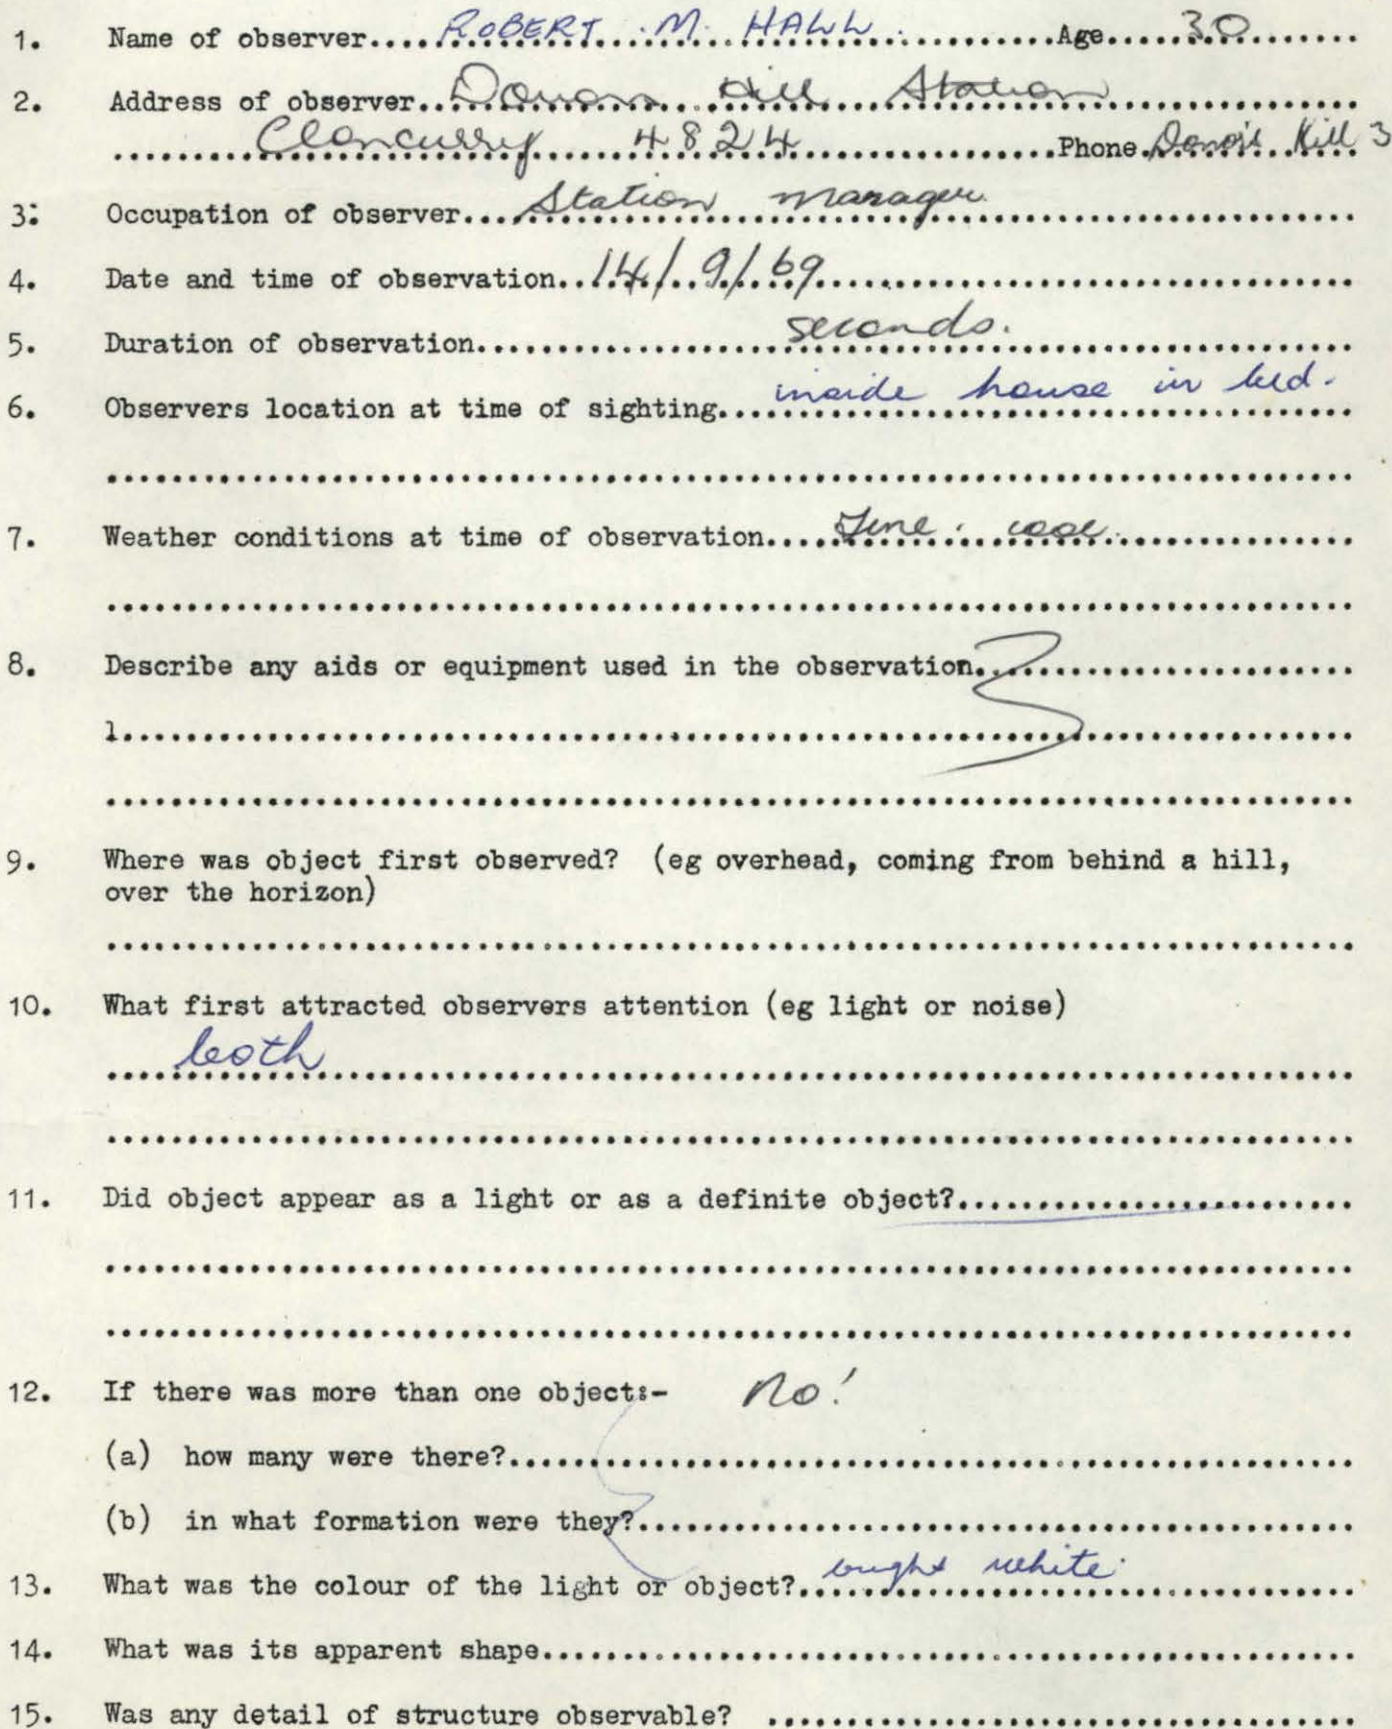 1. Name of observer....ROBERT M. HALL...........Age.....30........
2. Address of observer..Donors Hill Station..............
........Cloncurry 4824..............Phone.Donors Hill 3
3: Occupation of observer...Station manager..................
4. Date and time of observation..14/9/69..............................
5. Duration of observation..................seconds...................
6. Observers location at time of sighting...inside house in bed.
................................................................................
7. Weather conditions at time of observation....Fine. cool..............
................................................................................
8. Describe any aids or equipment used in the observation.......................
1...............................................................................
................................................................................
9. Where was object first observed? (eg overhead, coming from behind a hill,
over the horizon)
................................................................................
10. What first attracted observers attention (eg light or noise)
.....both.......................................................................
................................................................................
11. Did object appear as a light or as a definite object?.........................
................................................................................
................................................................................
12. If there was more than one object:- no!
(a) how many were there?......................................................
(b) in what formation were they?..............................................
13. What was the colour of the light or object?..bright white................
14. What was its apparent shape...................................................
15. Was any detail of structure observable? ......................................